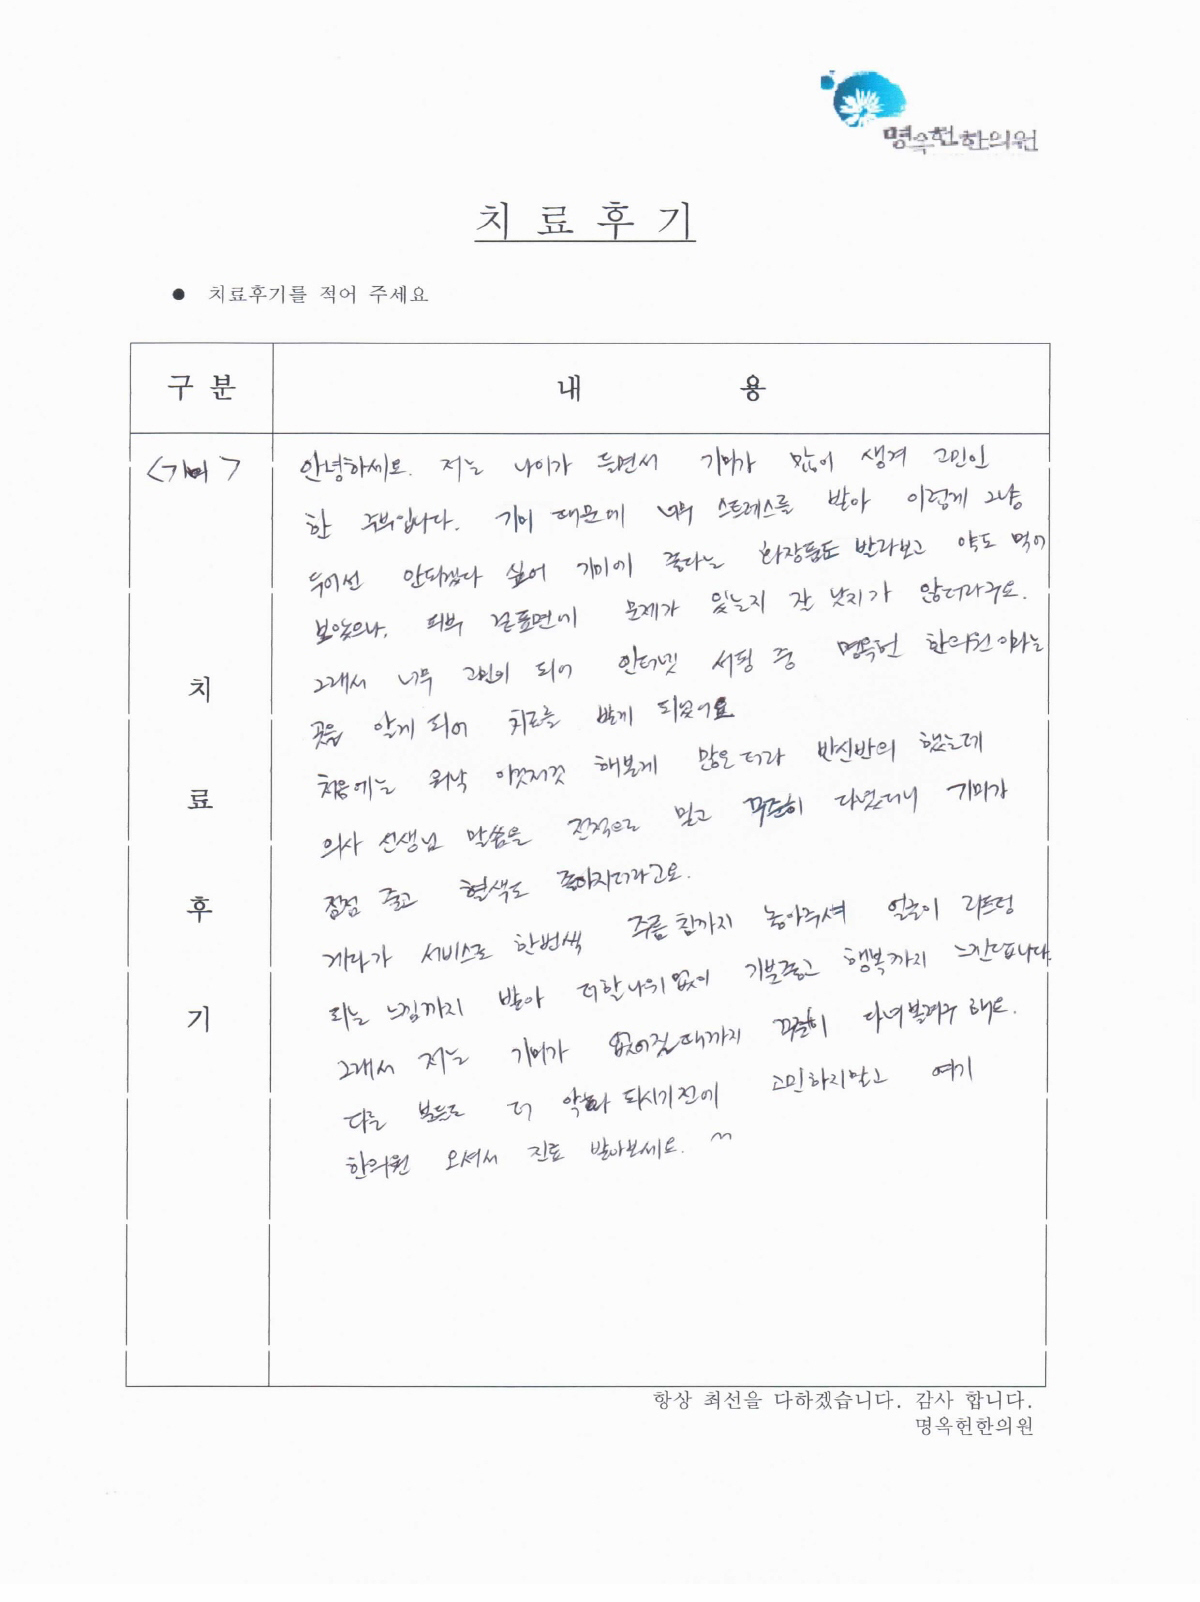 명옥헌한의원
치 료 후 기
● 치료후기를 적어 주세요
구 분
내 용
<기미>
치
료
후
기
안녕하세요. 저는 나이가 들면서 기미가 많이 생겨 고민인
한 주부입니다. 기미 때문에 너무 스트레스를 받아 이렇게 그냥
두어선 안되겠다 싶어 기미에 좋다는 화장품도 발라보고 약도 먹어
보았으나, 피부 겉표면에 문제가 있는지 잘 낫지가 않더라구요.
그래서 너무 고민이 되어 인터넷 서핑 중 명옥헌 한의원이라는
곳을 알게 되어 치료를 받게 되었어요
처음에는 워낙 이것저것 해본게 많은터라 반신반의 했는데
의사 선생님 말씀을 전적으로 믿고 꾸준히 다녔더니 기미가
점점 줄고 혈색도 좋아지더라고요.
게다가 서비스로 한번씩 주름침까지 놓아주셔 얼굴이 리프팅
되는 느낌까지 받아 더할나위없이 기분좋고 행복까지 느낀답니다.
그래서 저는 기미가 없어질때까지 꾸준히 다녀볼려구 해요.
다른 분들도 더 악화 되시기전에 고민하지말고 여기
한의원 오셔서 진료 받아보세요. ^^
항상 최선을 다하겠습니다. 감사 합니다.
명옥헌한의원